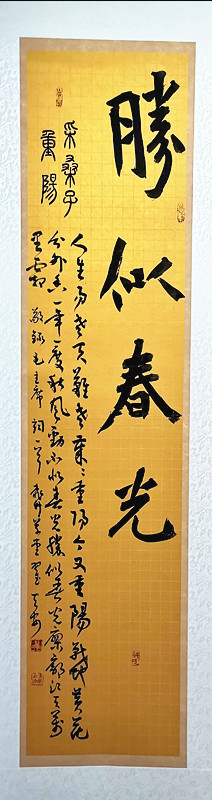 勝似春光
采桑子
重陽
人生易老天難老歲〻重陽今又重陽戰地黃花
分外香一年一度秋風勁不似春光勝似春光廖廓江天萬
里霜 敬錄毛主席詞一首